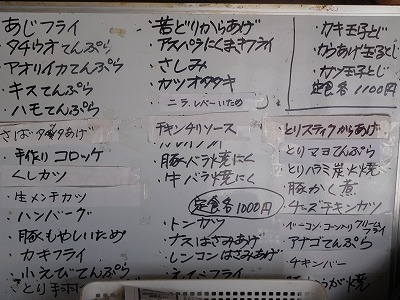 あじフライ
・タチウオてんぷら
・アオリイカてんぷら
・キスてんぷら
・ハモてんぷら
さばタツタあげ
・手作りコロッケ
くしカツ
・生メンチカツ
・ハンバーグ
・豚もやしいため
・カキフライ
・小えびてんぷら
とり手羽
・若どりからあげ
・アスパラにくまきフライ
・さしみ
・カツオタタキ
・ニラ、レバーいため
チキンチリソース
・豚バラ焼にく
・牛バラ焼にく
定食各1000円
・トンカツ
・ナスはさみあげ
・レンコンはさみあげ
・カキ玉子とじ
・からあげ玉子とじ
・カツ玉子とじ
定食各1100円
・とりスティックからあげ
・とりマヨてんぷら
・とりハラミ炭火焼
・豚かく煮
・チーズチキンカツ
・ベーコン・コーン入りクリームフライ
・アナゴてんぷら
・チキンバー